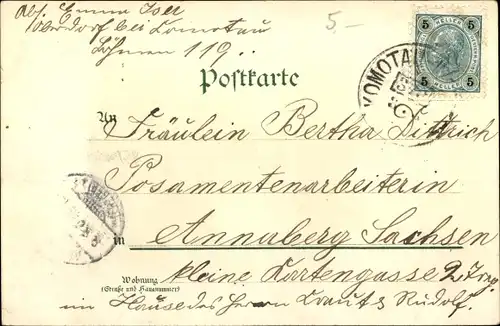 Abs. Emma Iser
Oberdorf bei Komotau
Böhmen 119.
5.-
5 HELLER 5
5 HELLER 5
KOMOTAU
Postkarte
An
Fräulein Bertha Dittrich
Posamentenarbeiterin
in Annaberg Sachsen
kleine Kartengasse 2
Wohnung
(Straße und Hausnummer)
im Hause des Herrn Rudolf.